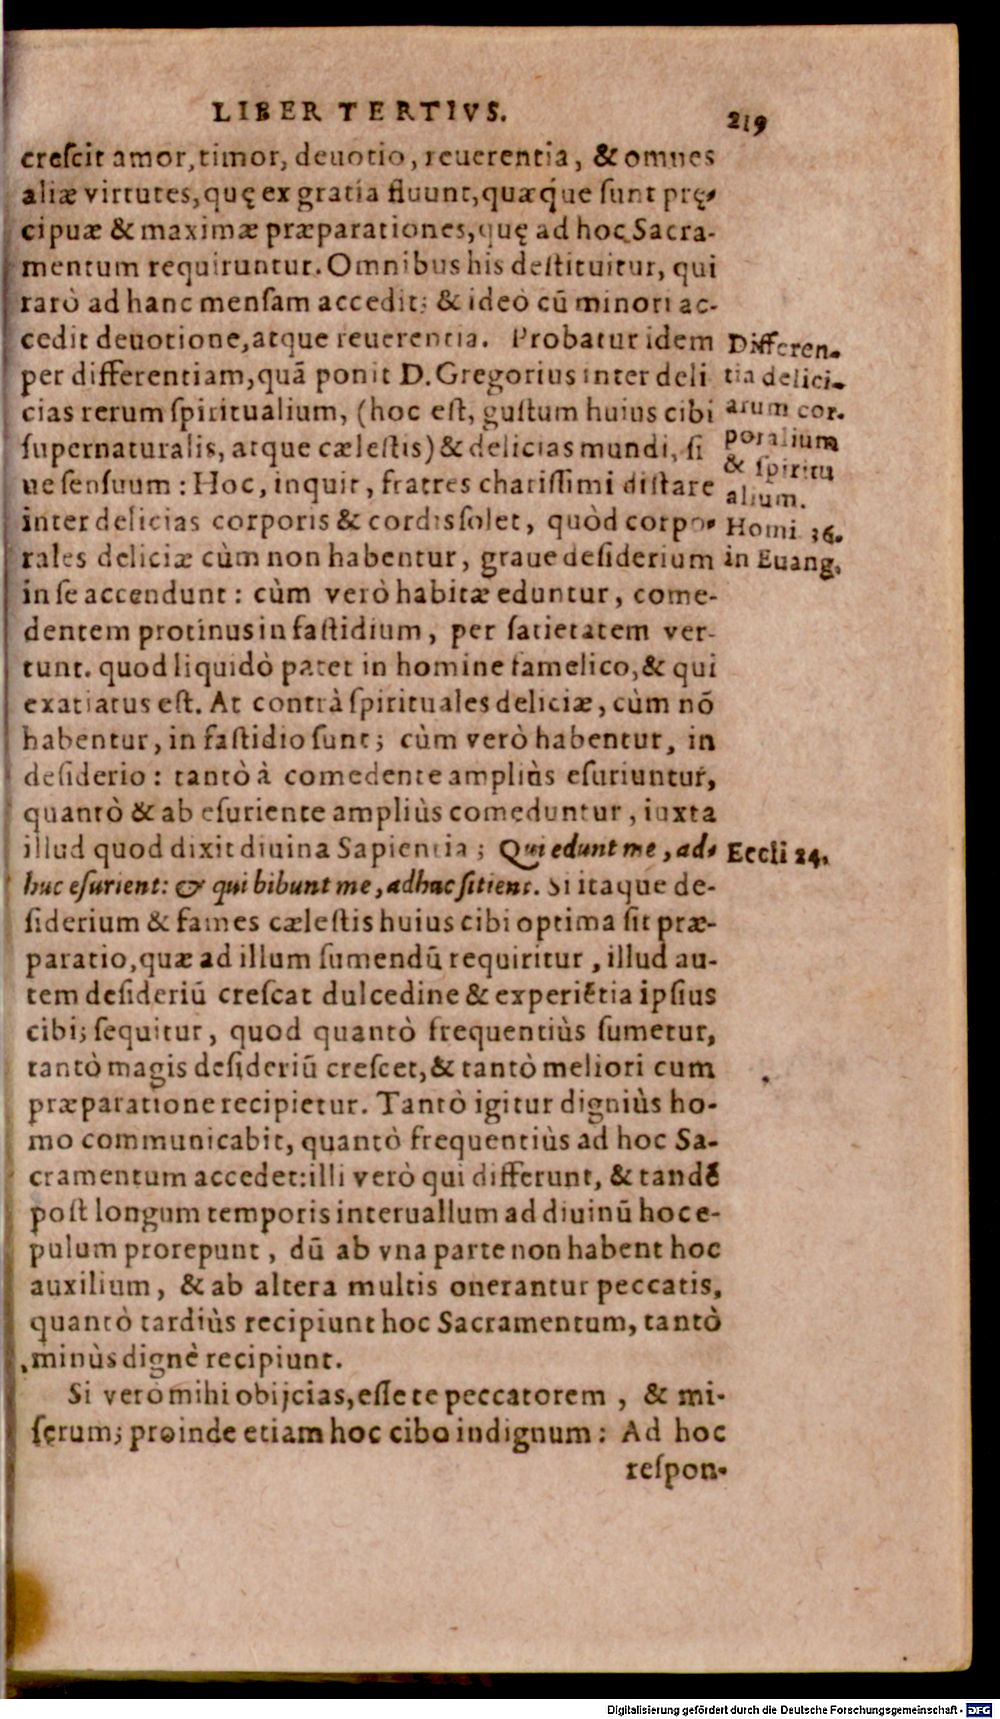 LIBER TERTIVS.
219
creſcit amor, timor, deuotio, reuerentia, & omnes
aliæ virtutes, quę ex gratia fluunt, quæq́ue ſunt prę-
cipuæ & maximæ præparationes, quę ad hoc Sacra-
mentum requiruntur. Omnibus his deſtituitur, qui
rarò ad hanc menſam accedit; & ideò cū minori ac-
cedit deuotione, atque reuerentia. Probatur idem
per differentiam, quā ponit D. Gregorius inter deli
cias rerum ſpiritualium, (hoc eſt, guſtum huius cibi
ſupernaturalis, atque cæleſtis) & delicias mundi, ſi
ue ſenſuum: Hoc, inquit, fratres chariſſimi diſtare
inter delicias corporis & cordis ſolet, quòd corpo-
rales deliciæ cùm non habentur, graue deſiderium
in ſe accendunt: cùm verò habitæ eduntur, come-
dentem protinus in faſtidium, per ſatietatem ver-
tunt. quod liquidò patet in homine famelico, & qui
exatiatus eſt. At contrà ſpirituales deliciæ, cùm nō
habentur, in faſtidio ſunt; cùm verò habentur, in
deſiderio: tantò à comedente ampliùs eſuriuntur,
quantò & ab eſuriente ampliùs comeduntur, iuxta
illud quod dixit diuina Sapientia; Qui edunt me, ad-
huc eſurient: & qui bibunt me, adhuc ſitient. Si itaque de-
ſiderium & fames cæleſtis huius cibi optima ſit præ-
paratio, quæ ad illum ſumendū requiritur, illud au-
tem deſideriū creſcat dulcedine & experiētia ipſius
cibi; ſequitur, quod quantò frequentiùs ſumetur,
tantò magis deſideriū creſcet, & tantò meliori cum
præparatione recipietur. Tantò igitur digniùs ho-
mo communicabit, quantò frequentiùs ad hoc Sa-
cramentum accedet: illi verò qui differunt, & tandē
poſt longum temporis interuallum ad diuinū hoc e-
pulum prorepunt, dū ab vna parte non habent hoc
auxilium, & ab altera multis onerantur peccatis,
quantò tardiùs recipiunt hoc Sacramentum, tantò
minùs dignè recipiunt.
Si verò mihi obijcias, eſſe te peccatorem, & mi-
ſerum; proinde etiam hoc cibo indignum: Ad hoc
reſpon-
Differen-
tia delici-
arum cor-
poralium
& ſpiritu
alium.
Homi 36.
in Euang.
Eccli 24.
Digitalisierung gefördert durch die Deutsche Forschungsgemeinschaft - DFG